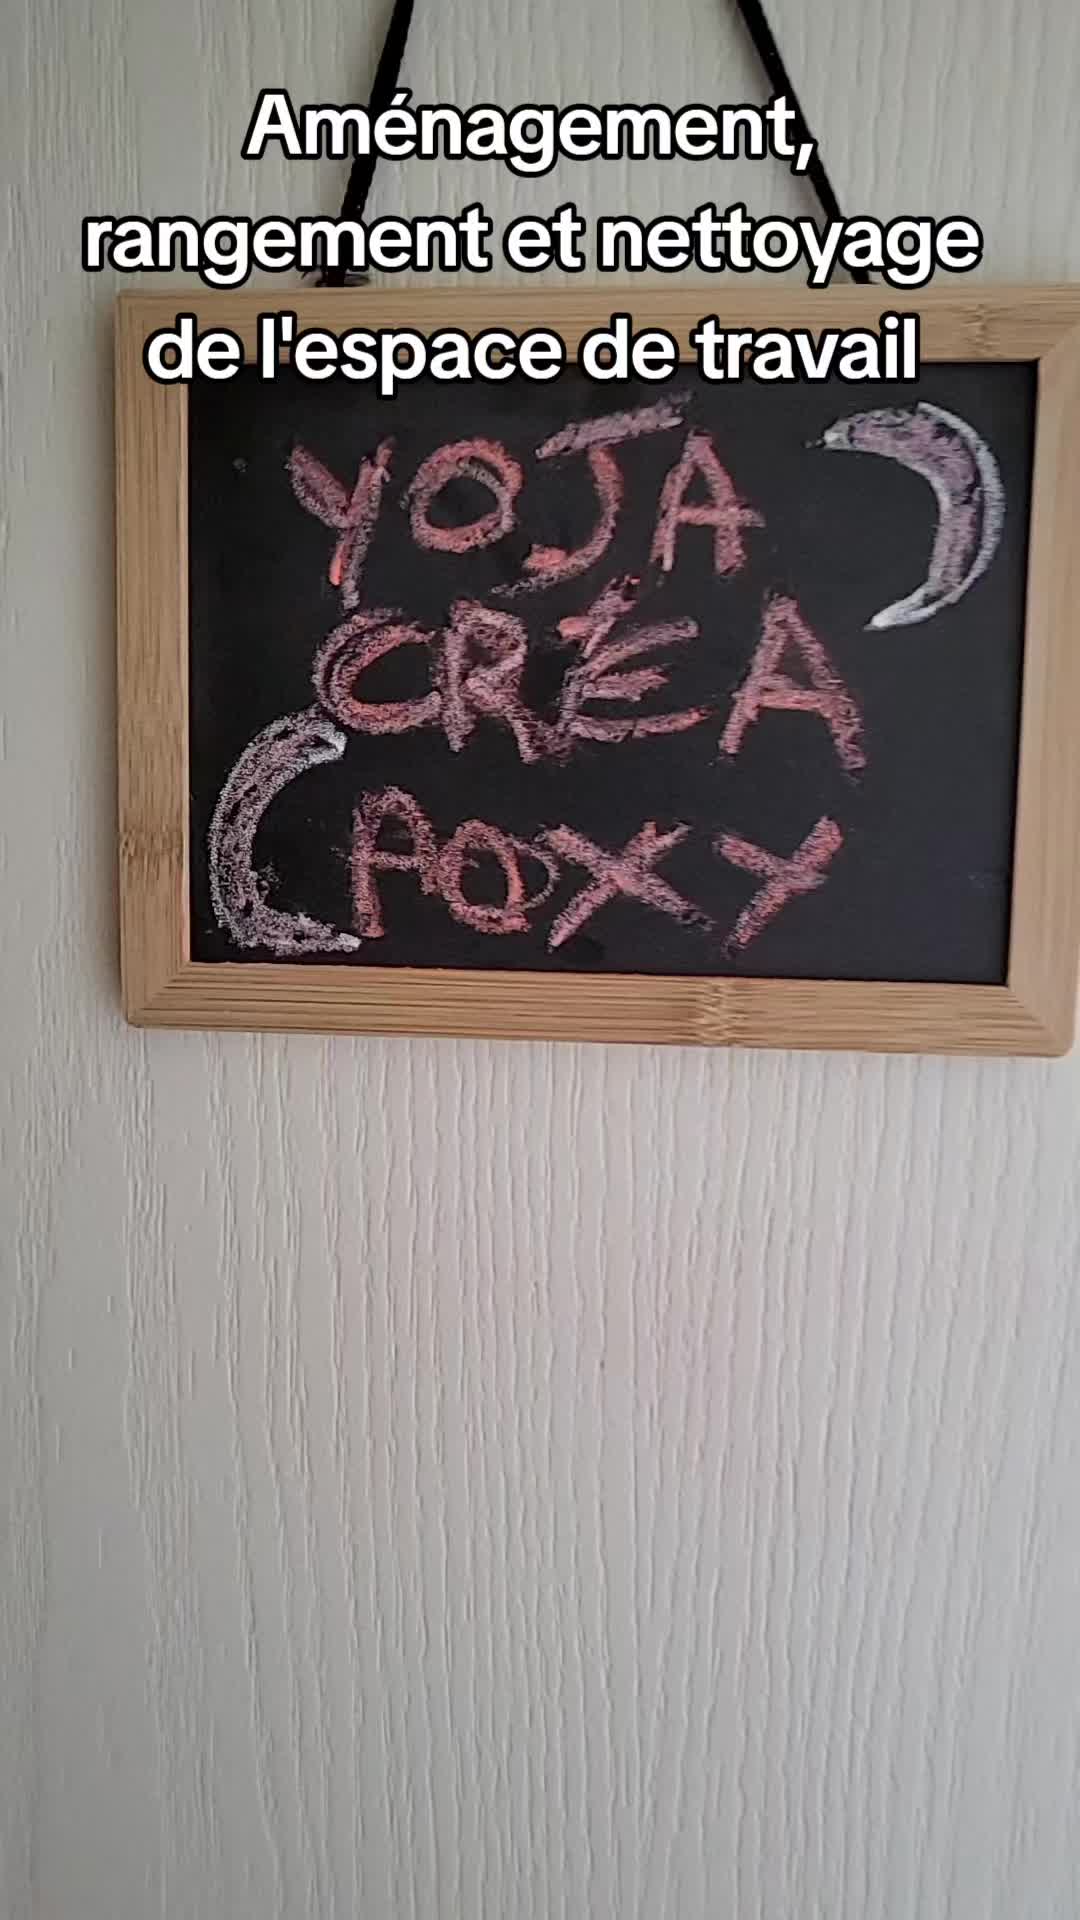 Aménagement,
rangement et nettoyage
de l'espace de travail
YOJA
CRÉA
POXY